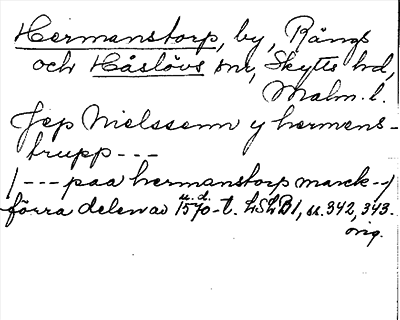 Hermanstorp, by, Rängs
och Håslövs snr, Skytts hd,
Malm. l.
Jep Nielssenn y hermens-
trupp ---
/--- paa hermanstorp marck --/
u. d.
förra delen av 1570-t. LSLB1, ss. 342, 343.
orig.